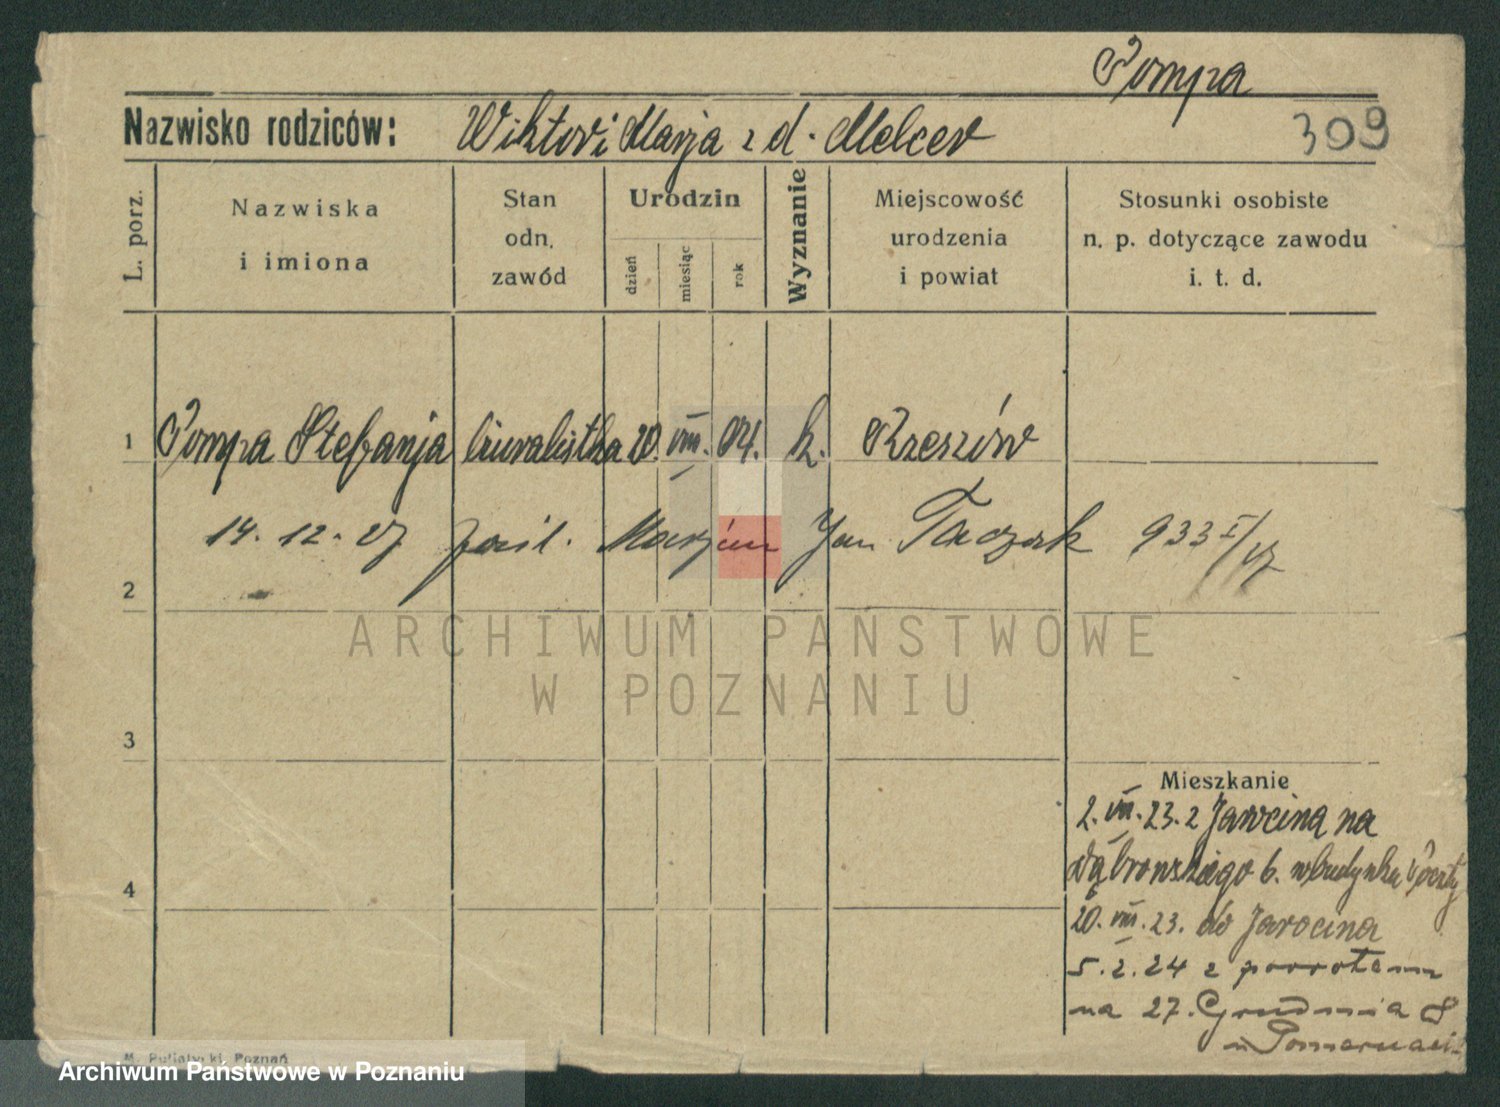 Pompa
Nazwisko rodziców: Wiktor i Marja z d. Melcer
309
L. porz.
Nazwiska
i imiona
Stan
odn.
zawód
Urodzin
dzień
miesiąc
rok
Wyznanie
Miejscowość
urodzenia
i powiat
Stosunki osobiste
n. p. dotyczące zawodu
i. t. d.
1 Pompa Stefanja biuralistka 20. VIII. 04. k. Rzeszów
14. 12. 27 Marjan Jan Taczak 933
2
3
4
ARCHIWUM PAŃSTWOWE
W POZNANIU
Mieszkanie
2. VIII. 23. z Jarocina na
Dąbrowskiego 6. w budynku Poczty
20. VIII. 23. do Jarocina
5. 2. 24 z powrotem
na 27. Grudnia 8
u
M. Poznań
Archiwum Państwowe w Poznaniu